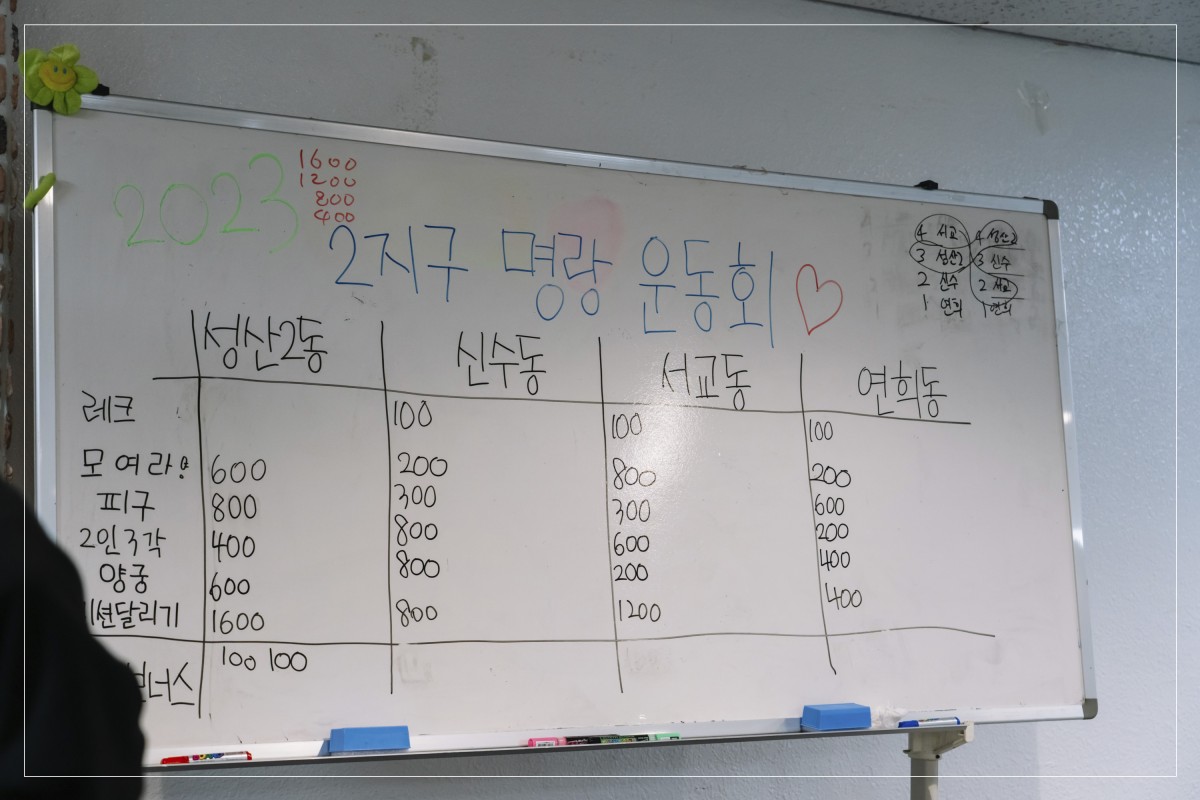 2023
1600
1200
800
400
2지구 명랑 운동회
4 서교 4 성산2
3 성산2 3 신수
2 신수 2 서교
1 연희 1 연희
성산2동 신수동 서교동 연희동
레크 100 100 100
모여라! 600 200 800 200
피구 800 300 300 600
2인3각 400 800 600 200
양궁 600 800 200 400
션달리기 1600 800 1200 400
너스 100 100